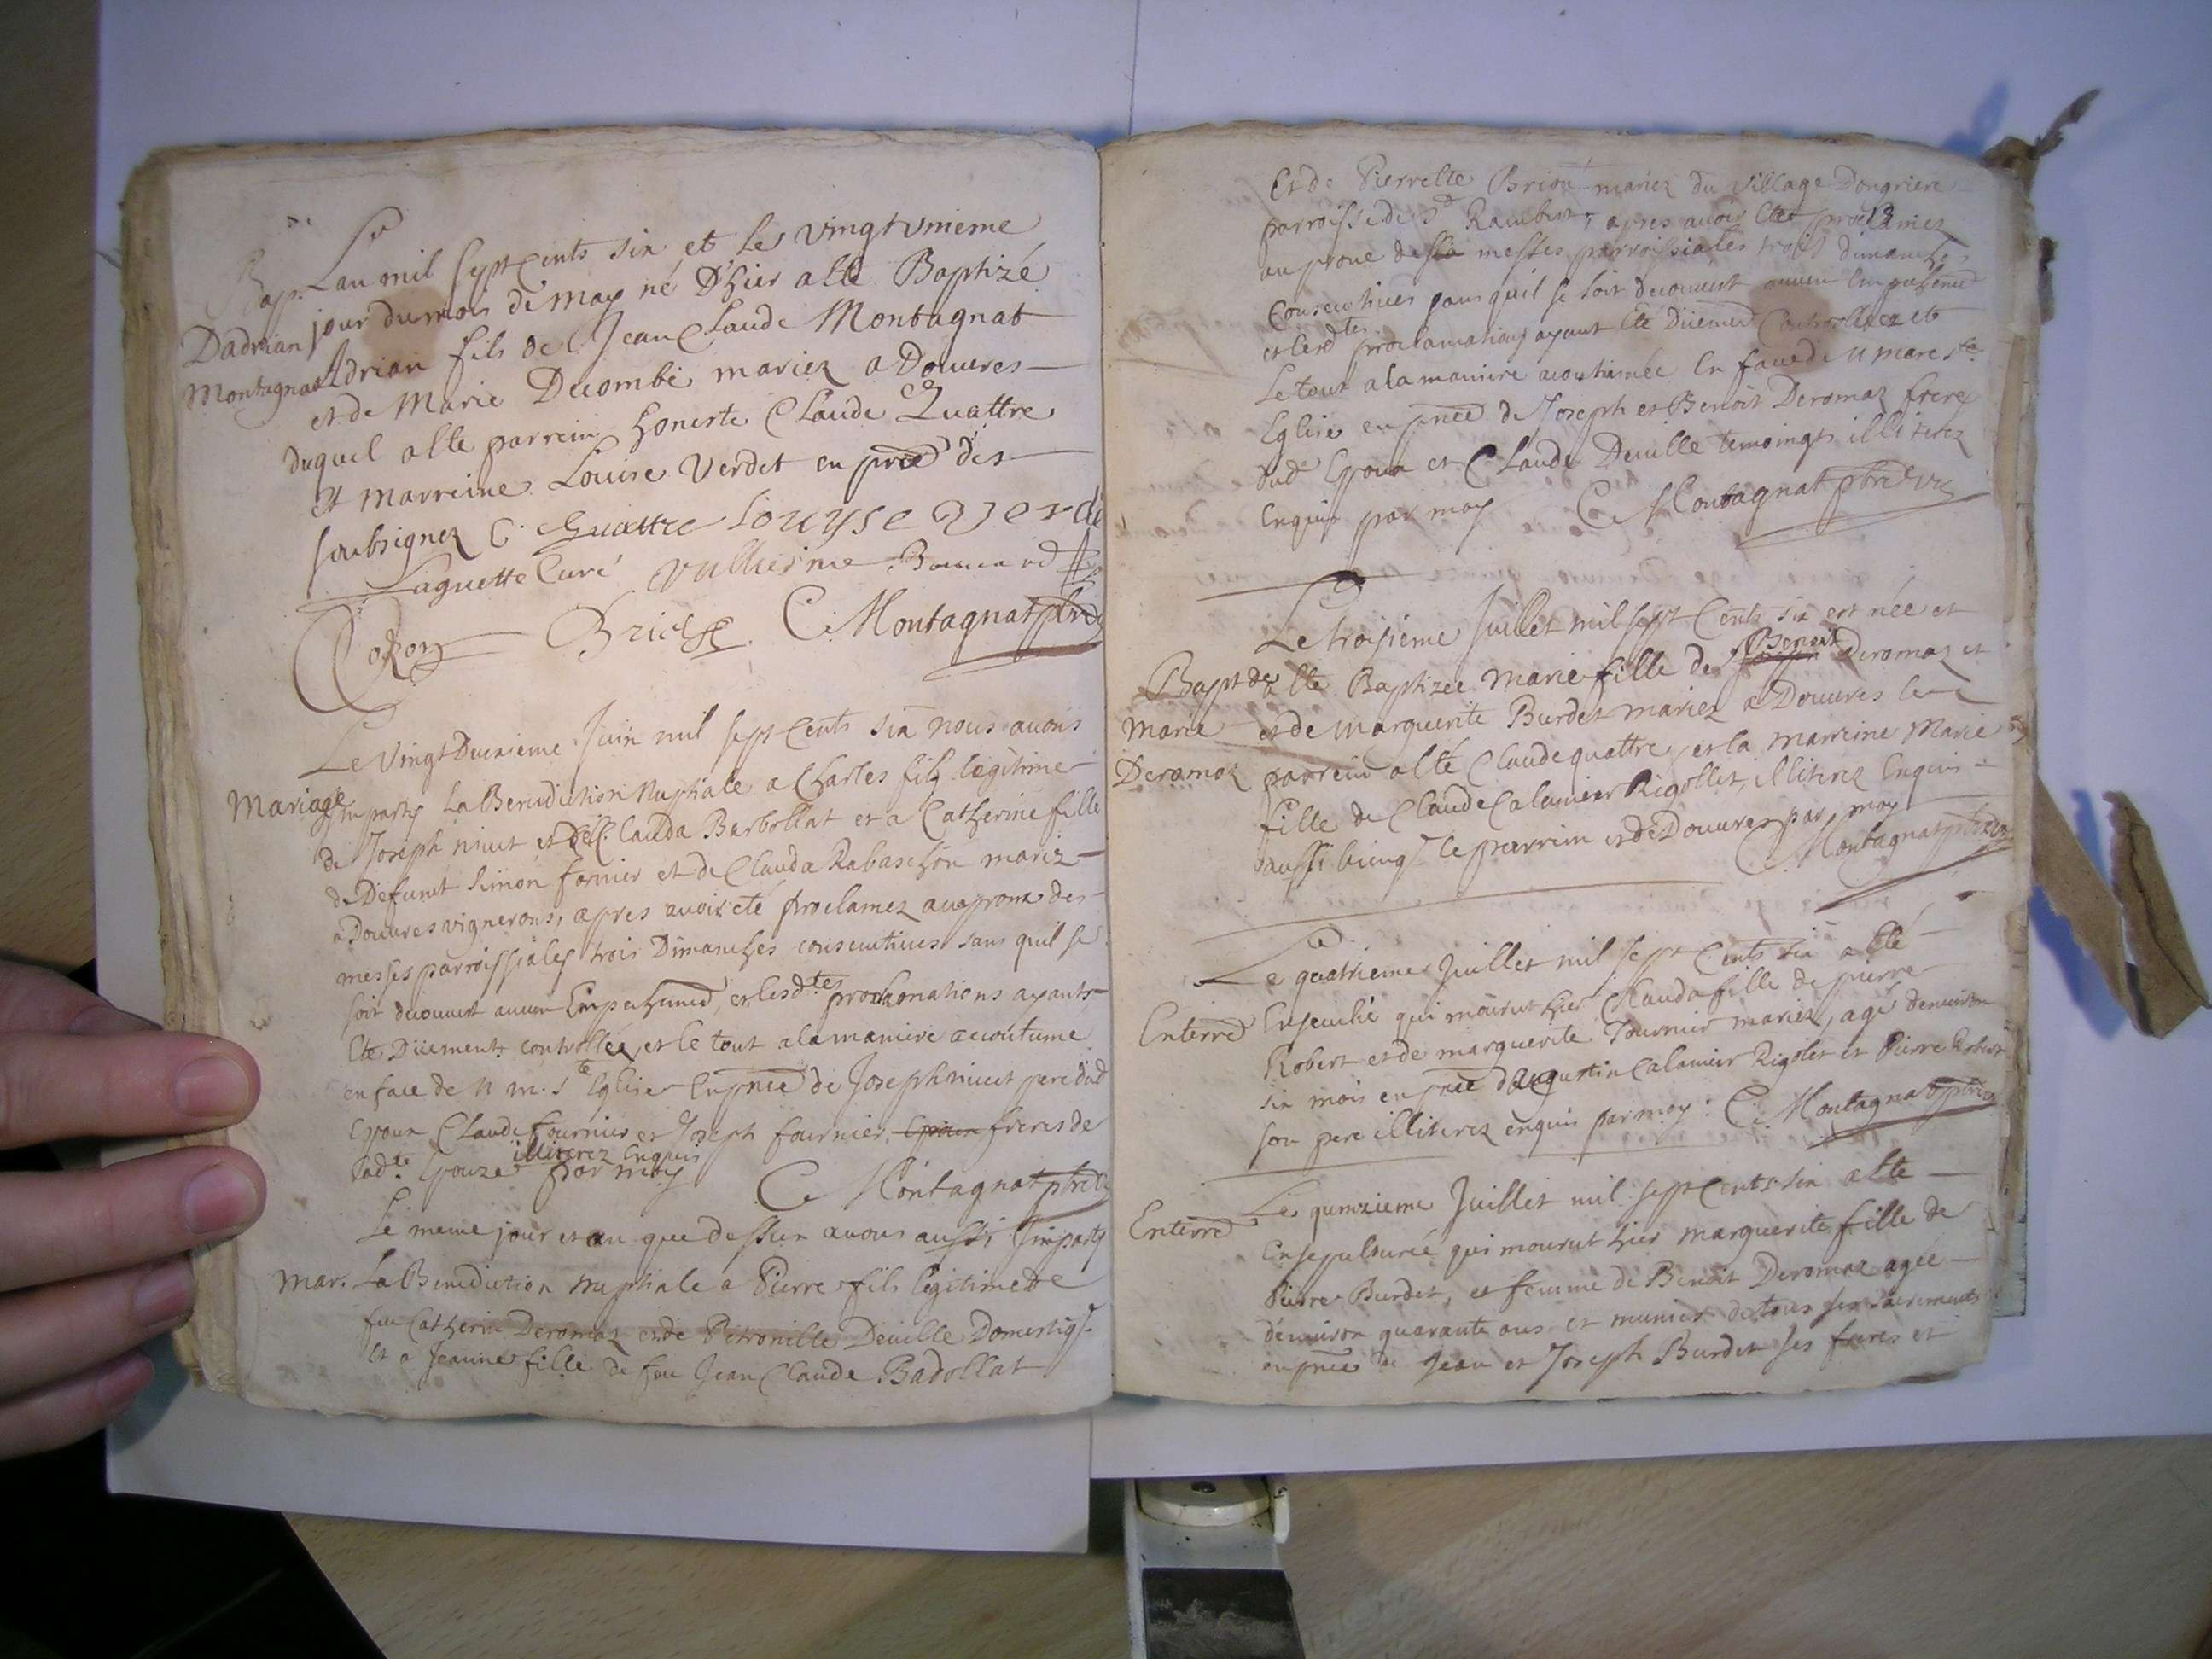 Lan mil sept cents six et le vingt unieme
Bap.
Dadrian
Montagnat
jour du mois de may né D'hier a été Baptizé
Adrian fils de Jean Claude Montagnat
et de Marie Decombe mariez a Douures
duquel a ete parrein honeste Claude Quattre
et marreine Louise Verdet en pnce des
soubsignez C. Quattre Louyse Verde
Laguette Curé Vullierme
C Montagnat ptre
Le Vingt Deuxieme Juin mil sept cents six nous avons
Mariage
Imparty La Benediction Nuptiale a Charles fils legitime
de Joseph niuet et de Clauda Barbollat et a Catherine fille
de Defunct Simon fornier et de Clauda Rabaschon mariz
a Douures vignerons, apres avoir eté proclamez au prone des
messes parroissiales trois Dimanches consecutives sans quil se
soit decouvert aucun Empechemt, et lesdtes proclamations ayants
Eté Düement controllées, et le tout a la maniere accoutume
en face de N m. Ste Eglise En pnce de Joseph niuet pere dud
Epoux Claude fournier et Joseph fournier, Epoux freres de
ladte Epouze illiterez Enquis par moy
C Montagnat ptre
Le meme jour et an que dessus avons aussi Imparty
Mar.
La Benediction nuptiale a Pierre fils legitime de
feu Catherin Deromaz et de Petronille Deuille Domestiqs
et a Jeanne fille de feu Jean Claude Badollat
Et de Pierrette mariez du Village Dongriere
parroisse de St Rambert, apres avoir Eté proclamez
au prone de messes parroissiales trois dimanches
Consecutives sans quil se soit decouvert aucun Empechemt
et lesdtes proclamations ayant Eté Düement Controllées et
Le tout a la maniere acoutumée En face de N mere Ste
Eglise en pnce de Joseph et Benoit Deromaz frere
dud Epoux et Claude Deuille temoings illiterez
Enquis par moy C Montagnat ptre
Le troisieme Juillet mil sept Cents six est née et
Bapt de
Marie
Deromaz
a ete Baptizée Marie fille de Benoit Deromaz et
et de Marguerite Burdet mariez a Douures le
parrein a eté Claude quattre, et la marreine Marie
fille de Claude Calamier Rigollet, illiterez Enquis
aussi bien q le parrein et de Douures par moy
C Montagnat ptre
Le quatrieme Juillet mil sept Cents six a eté
Enterremt
Enseveli qui mourut hier Clauda fille de pierre
Robert et de marguerite Tournier mariez, agé denviron
six mois en pnce daugustin Calamier Rigolet et Pierre Robert
son pere illiterez enquis par moy: C Montagnat ptre
Le quinzieme Juillet mil sept Cents six a ete
Enterremt
Ensepulturée qui mourut hier marguerite fille de
Pierre Burdet, et femme de Benoit Deromaz agée
d'environ quarante ans et munies de tous ses sacrements
en pnce de Jean et Joseph Burdet ses freres et